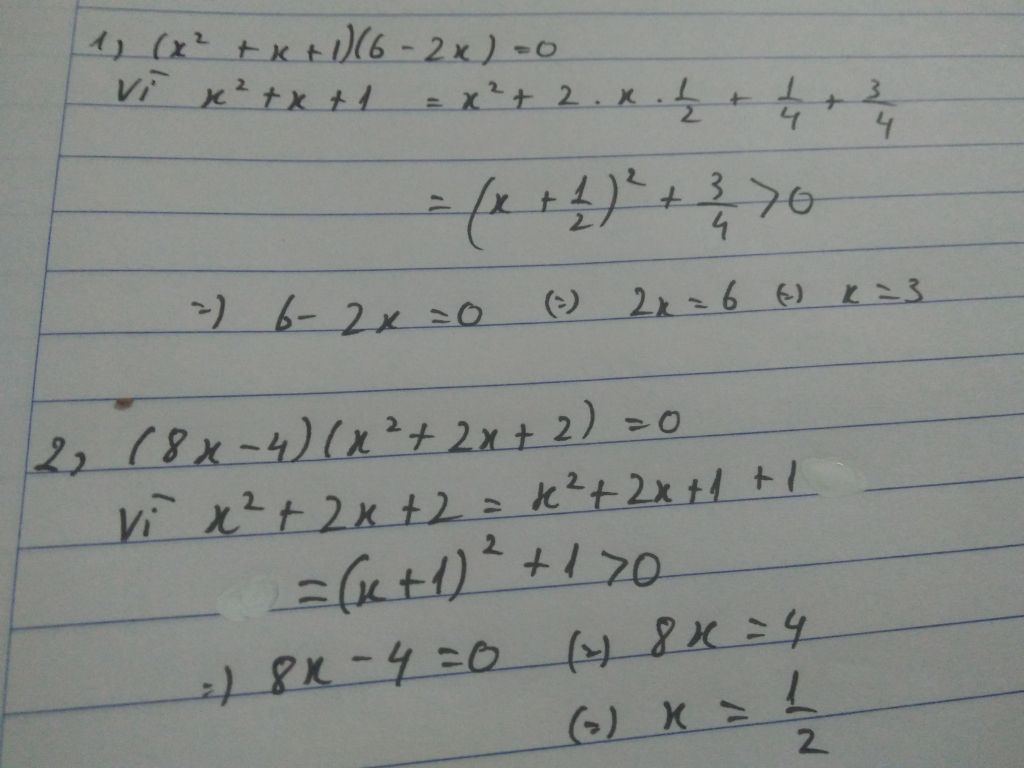 1, (x² + x + 1)(6 - 2x) = 0
Vì x² + x + 1 = x² + 2 . x . 1/2 + 1/4 + 3/4
= (x + 1/2)² + 3/4 > 0
=) 6 - 2x = 0 (=) 2x = 6 (=) x = 3
2, (8x - 4)(x² + 2x + 2) = 0
Vì x² + 2x + 2 = x² + 2x + 1 + 1
= (x + 1)² + 1 > 0
=) 8x - 4 = 0 (=) 8x = 4
(=) x = 1/2